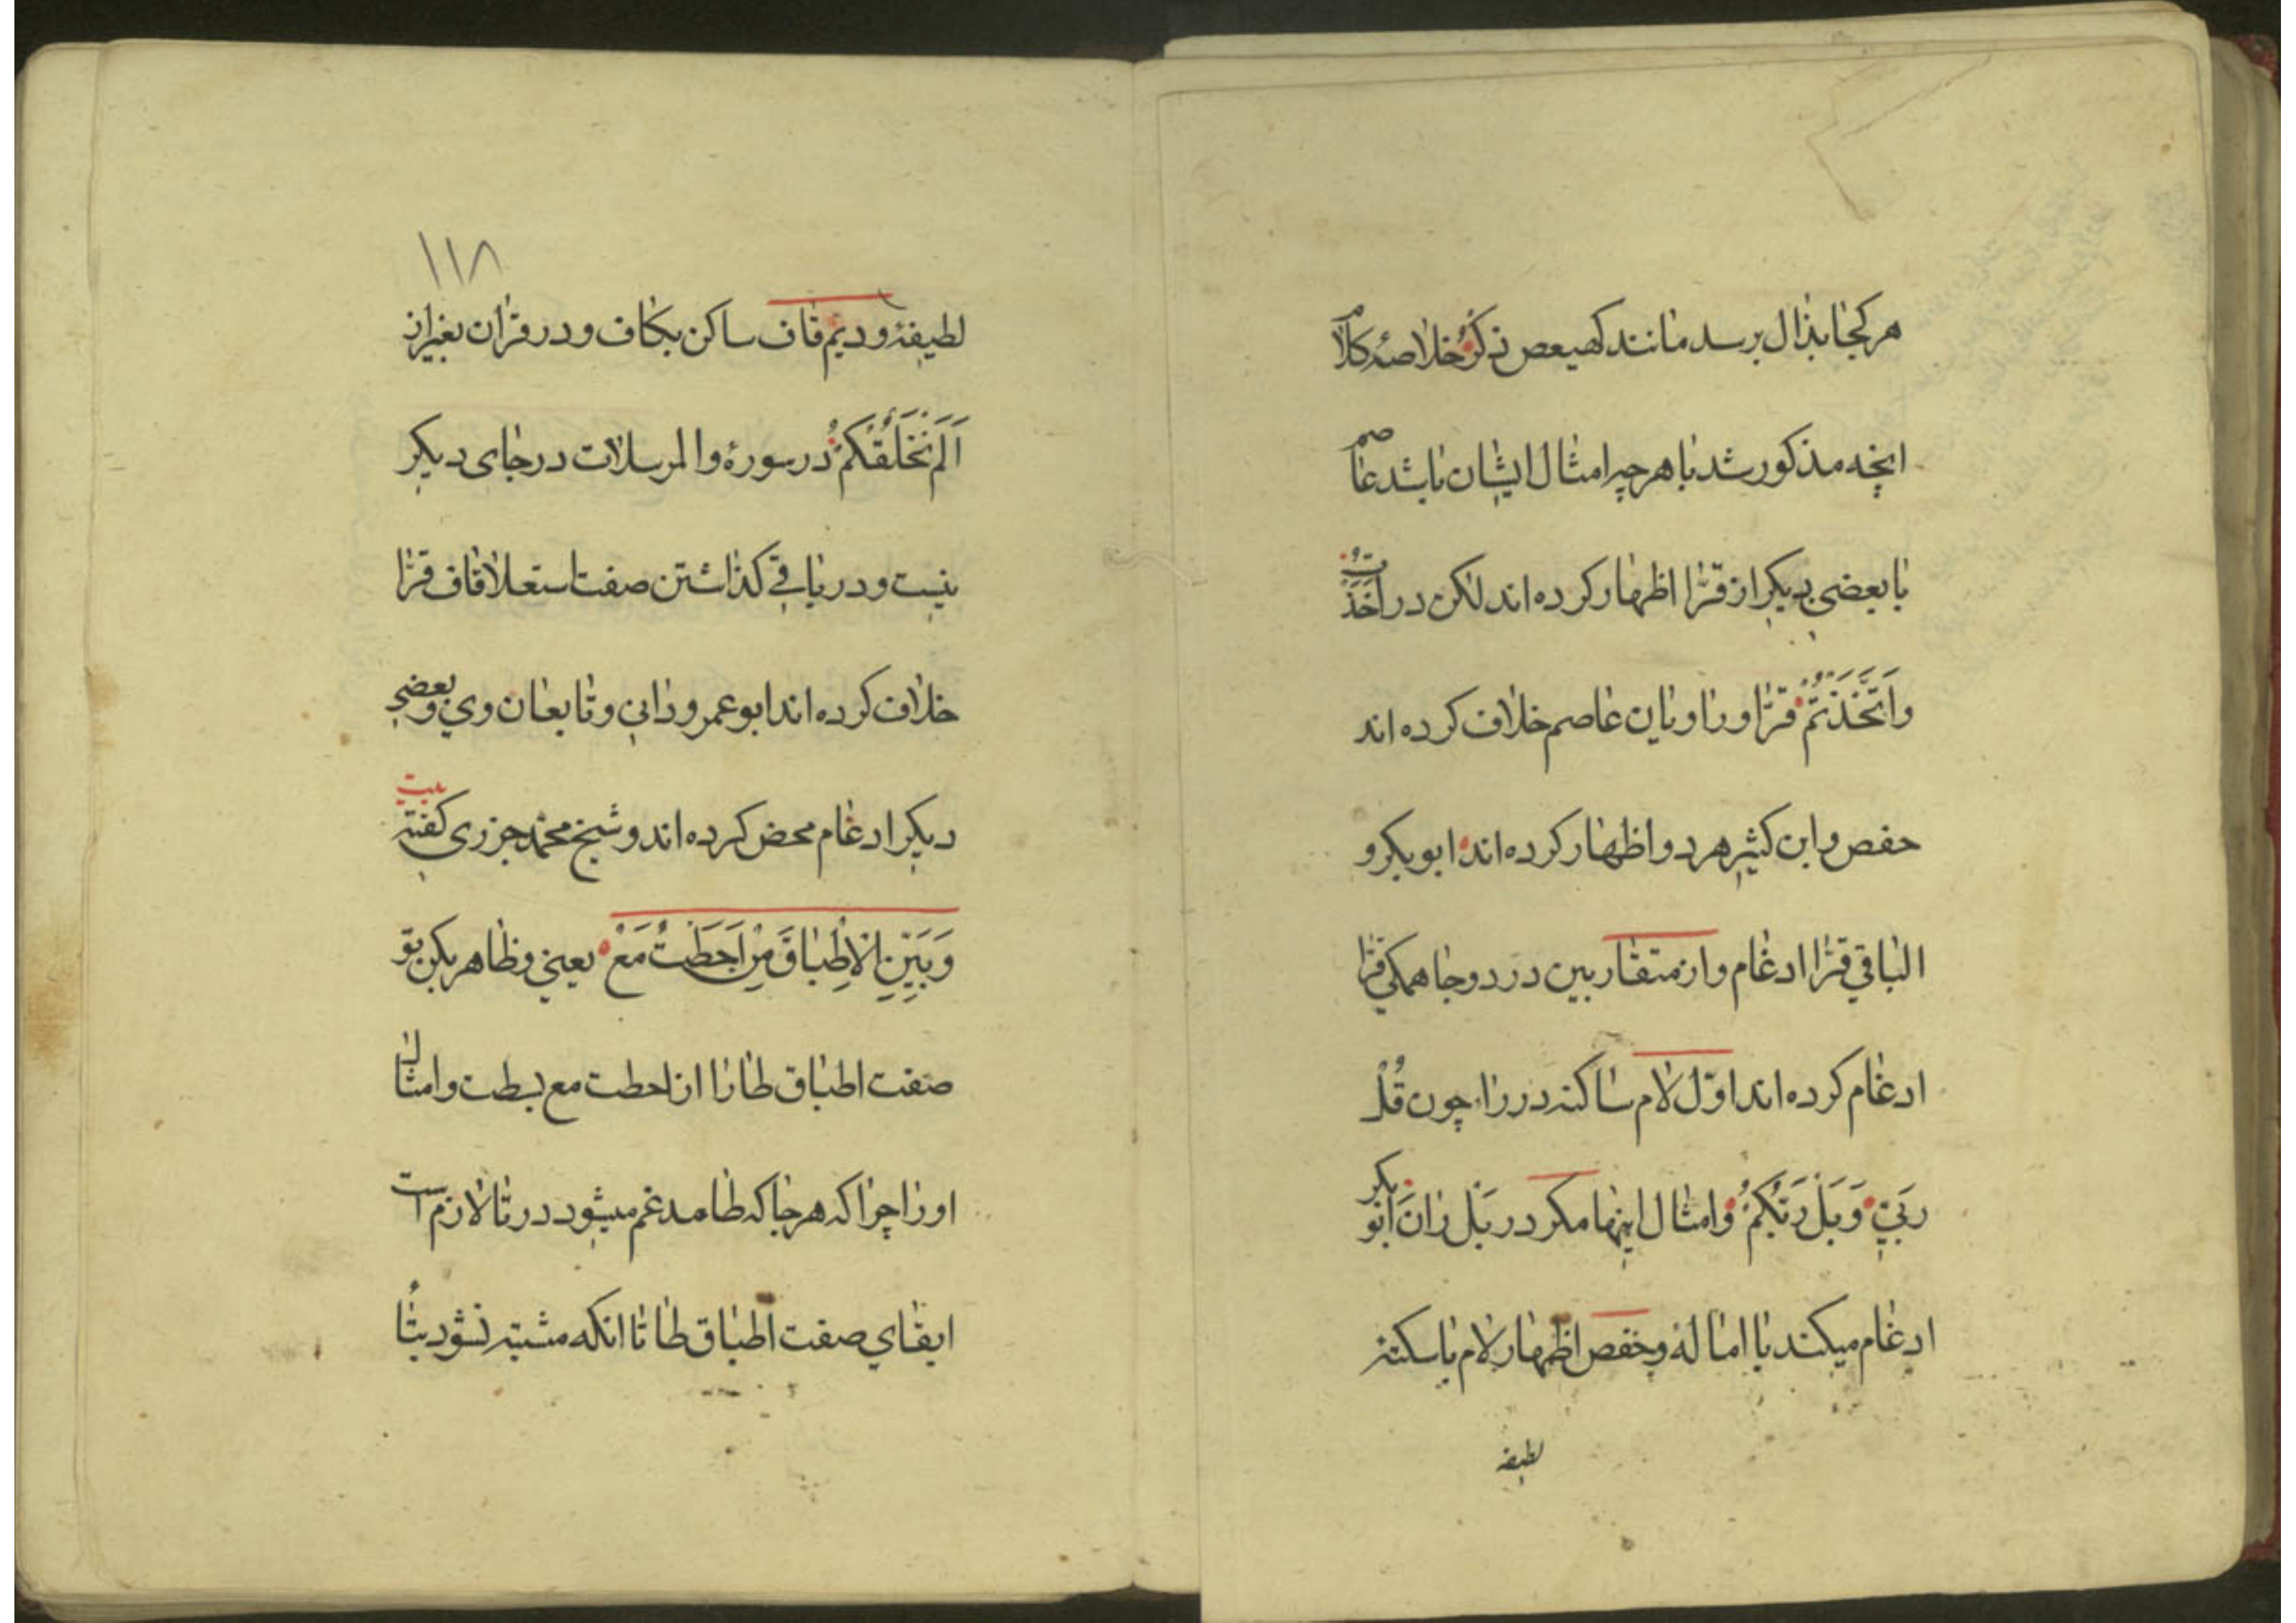 هر کجا بذال برسد مانند کهیعص ذکر خلاصه کلام
انچه مذکور شد با هر چه امثال ایشان باشد عاصم
با بعضی دیکر از قرّا اظهار کرده اند لکن در اخذت
وَاتَّخَذْتُمْ قرّا و راویان عاصم خلاف کرده اند
حفص و ابن کثیر هر دو اظهار کرده اند ابو بکر و
الباقی قرّا ادغام و از متقاربین در دو جا همکی قرّا
ادغام کرده اند اوّل لام ساکنه در را چون قُلْ
رَبّی وَبَلْ رَبُّکُمْ و امثال اینها مکر در بَل رَانَ ابو بکر
ادغام میکند با اماله و حفص اظهار لام با سکته
لطیفه
۱۱۸
لطیفه و دیم قاف ساکن بکاف و در قران بغیر از
اَلَمْ نَخْلُقْکُمْ در سورهٔ والمرسلات در جای دیکر
نیست و در باقی کذاشتن صفت استعلا قاف قرّا
خلاف کرده اند ابو عمرو دانی و تابعان وی و بعضی
دیکر ادغام محض کرده اند و شیخ محمّد جزری کفته بیت
وَبَیِّنِ الْاِطْبَاقَ مِنْ اَحَطْتُ مَعْ یعنی و ظاهر بکن تو
صفت اطباق طا را از احطت مع بسطت و امثال
او را چرا که هر جا که طا مدغم میشود در تا لازم است
ابقای صفت اطباق طا تا انکه مشتبه نشود بتا